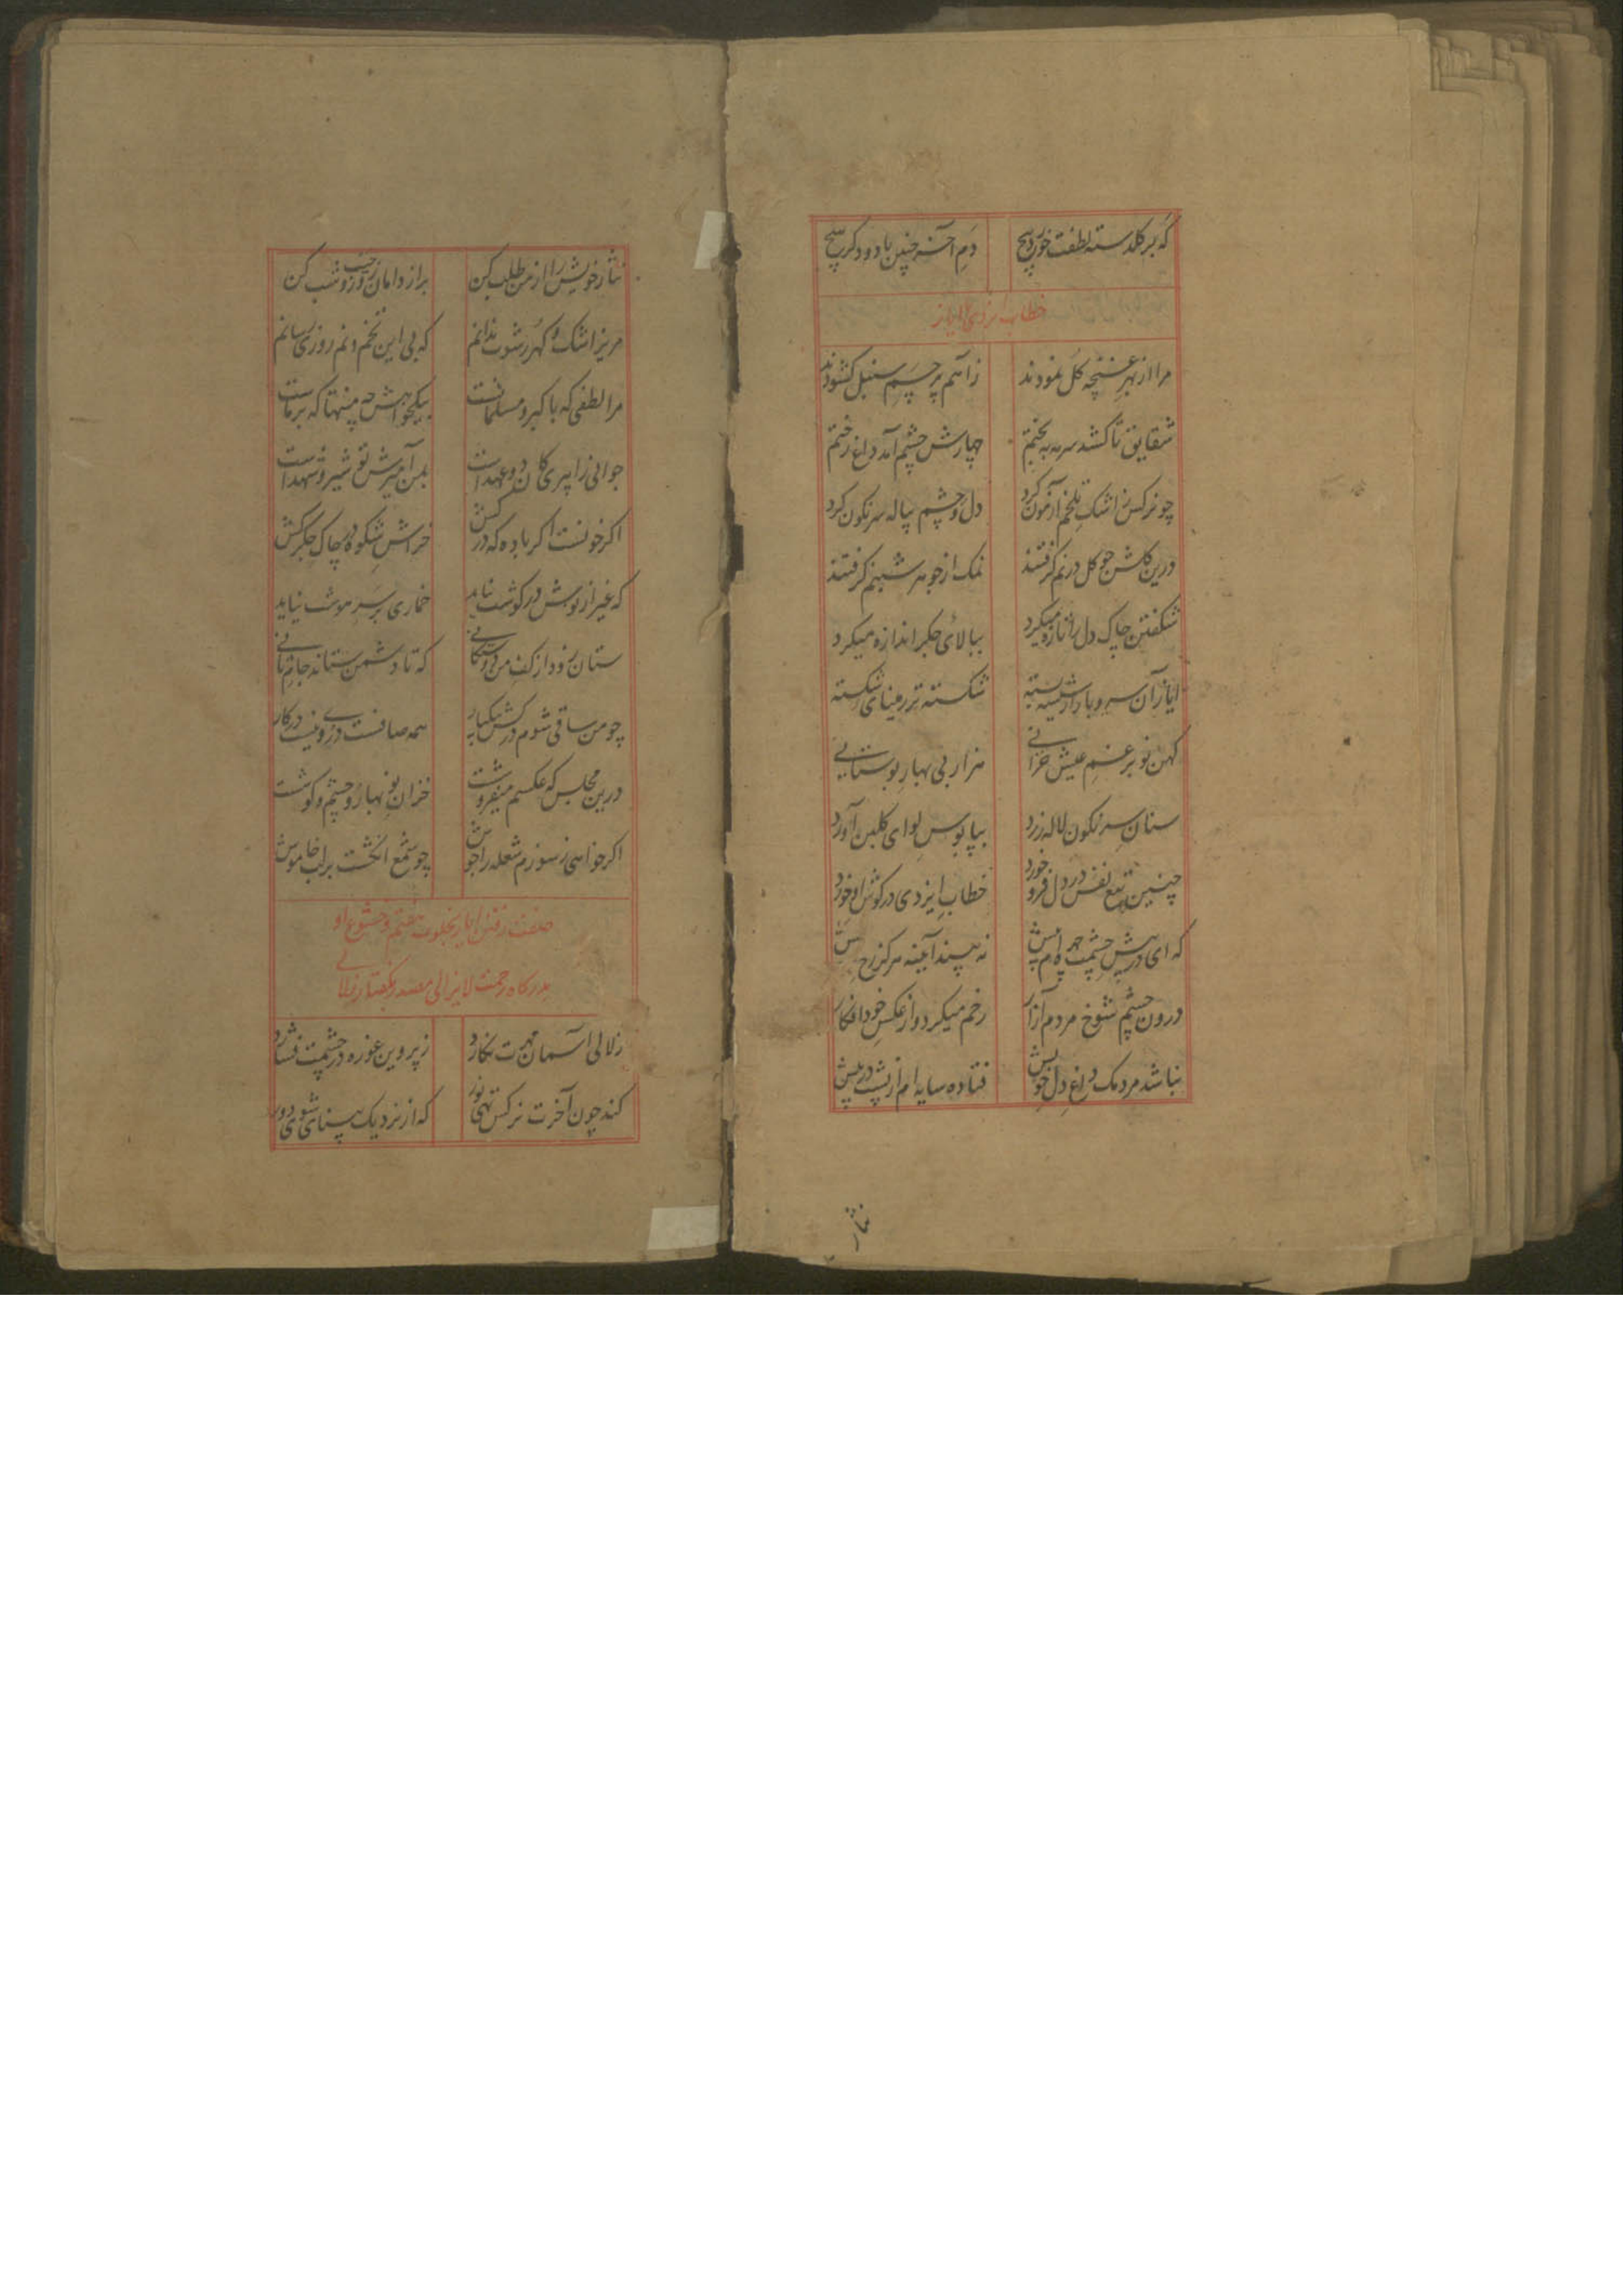 که بر کلدسته لطفت خورد پیچ دم آخر چنین با دود کر پیچ
خطاب ایزدی با ایاز
مرا از بهر غنچه کل نمودند ز آهم پرچم سنبل کشودند
شقایق تا کشد سرمه به بختم چهارش چشم آمد داغ رختم
چو نرکس ز اشک تلخم آزمون کرد دل و چشم پیاله سرنکون کرد
درین کلشن چو کل در نم کرفتند نمک از جوهر شبنم کرفتند
شکفتن چاک دل را تازه میکرد ببالای جکر اندازه میکرد
ایاز آن سرو بار از شیشه بسته شکسته تر ز مینای شکسته
کهن نوبر غم عیش خزانی هزار بی بهار بوستانی
سنان سرنکون لاله زرد بپابوس لوای کلبن آورد
چنین تیغ نفس در دل فرو خورد خطاب ایزدی در کوش او خورد
که ای در پیش چشمت چهره ام پیش نه بیند آینه هرکز رخ خویش
درون چشم شوخ مردم آزار رخم میکرد و از عکس خود افکار
نباشد مردمک داغ دل خویش فتاده سایه ام از پشت در پیش
نثار
نثار خویش را از من طلب کن براز دامان روز و جیب شب کن
مریز اشک و کهر رشوت ندانم که بی این تخم و نم روزی رسانم
مرا لطفی که با کبر و مسلمانست بیکخواهش چه منتها که بر ماست
جوانی را پیری کان دو عهد است بمن آمیزش تو شیر و شهد است
اکر خونست اکر باده که در کش خراش شکوه در چاک جکر کش
که غیر از نوش در کوشت نیاید خماری بر سر هوشت نیاید
ستان زود از کف من دوستکانی که تا دشمن ستاند جام ثانی
چو من ساقی شوم در کش بیکبار همه صافست دردی نیست در کار
درین مجلس که عکسم میفروشت خزان و نو بهار و چشم و کوشت
اکر خواهی ز سوزم شعله را جوش چو شمع انکشت بر لب خاموش
صفت رفتن ایاز بخلوت هفتم و خشوع او
بدرکاه رحمت لایزالی مصدر بکفتار زلالی
زلالی آسمان مهرت نکارد ز پروین غوره در چشمت فشارد
کند چون آخرت نرکس تهی نور که از نزدیک بینای شوی دور